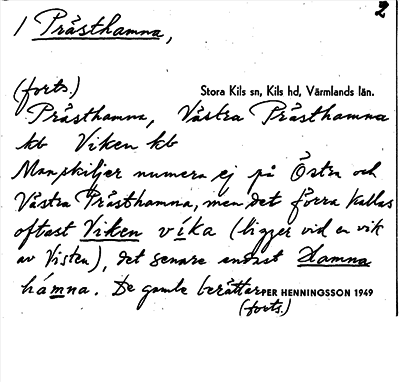 2
1 Prästhamna,
(forts.)
Stora Kils sn, Kils hd, Värmlands län.
Prästhamna, Västra Prästhamna
kb Viken kb
Man skiljer numera ej på Östra och
Västra Prästhamna, men det förra kallas
oftast Viken víka (ligger vid en vik
av Visten), det senare endast Hamna
hámna. De gamle berättar
PER HENNINGSSON 1949
(forts.)